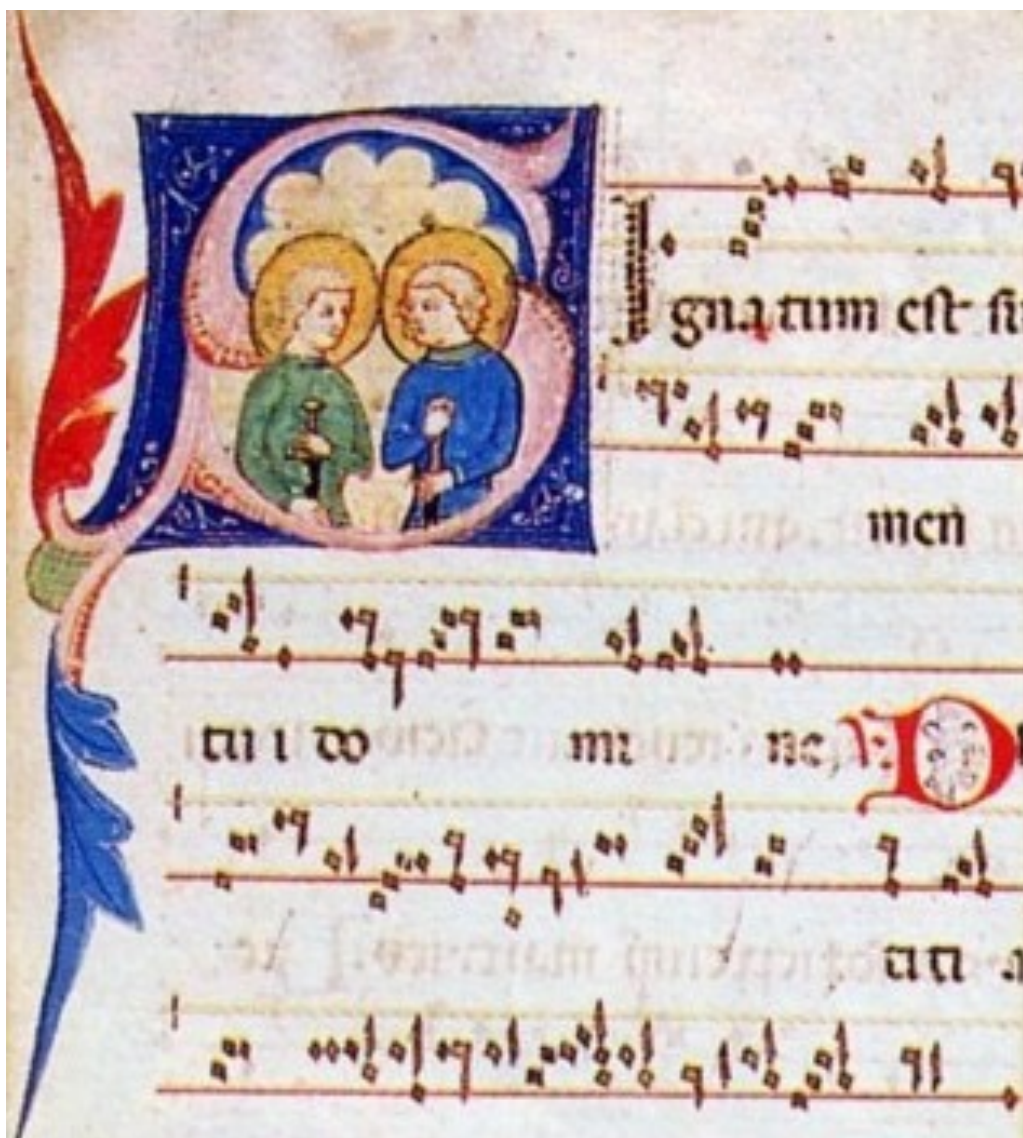 SIgnatum est su
men
tu i do mi ne, V. D
titi